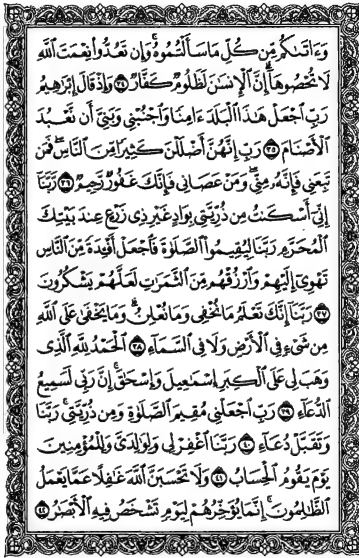 وَءَاتَىٰكُم مِّن كُلِّ مَا سَأَلْتُمُوهُ ۚ وَإِن تَعُدُّوا۟ نِعْمَتَ ٱللَّهِ
لَا تُحْصُوهَآ ۗ إِنَّ ٱلْإِنسَٰنَ لَظَلُومٌ كَفَّارٌ ٣٤ وَإِذْ قَالَ إِبْرَٰهِيمُ
رَبِّ ٱجْعَلْ هَٰذَا ٱلْبَلَدَ ءَامِنًا وَٱجْنُبْنِى وَبَنِىَّ أَن نَّعْبُدَ
ٱلْأَصْنَامَ ٣٥ رَبِّ إِنَّهُنَّ أَضْلَلْنَ كَثِيرًا مِّنَ ٱلنَّاسِ ۖ فَمَن
تَبِعَنِى فَإِنَّهُۥ مِنِّى ۖ وَمَنْ عَصَانِى فَإِنَّكَ غَفُورٌ رَّحِيمٌ ٣٦ رَّبَّنَآ
إِنِّىٓ أَسْكَنتُ مِن ذُرِّيَّتِى بِوَادٍ غَيْرِ ذِى زَرْعٍ عِندَ بَيْتِكَ
ٱلْمُحَرَّمِ رَبَّنَا لِيُقِيمُوا۟ ٱلصَّلَوٰةَ فَٱجْعَلْ أَفْـِٔدَةً مِّنَ ٱلنَّاسِ
تَهْوِىٓ إِلَيْهِمْ وَٱرْزُقْهُم مِّنَ ٱلثَّمَرَٰتِ لَعَلَّهُمْ يَشْكُرُونَ
٣٧ رَبَّنَآ إِنَّكَ تَعْلَمُ مَا نُخْفِى وَمَا نُعْلِنُ ۗ وَمَا يَخْفَىٰ عَلَى ٱللَّهِ
مِن شَىْءٍ فِى ٱلْأَرْضِ وَلَا فِى ٱلسَّمَآءِ ٣٨ ٱلْحَمْدُ لِلَّهِ ٱلَّذِى
وَهَبَ لِى عَلَى ٱلْكِبَرِ إِسْمَٰعِيلَ وَإِسْحَٰقَ ۚ إِنَّ رَبِّى لَسَمِيعُ
ٱلدُّعَآءِ ٣٩ رَبِّ ٱجْعَلْنِى مُقِيمَ ٱلصَّلَوٰةِ وَمِن ذُرِّيَّتِى ۚ رَبَّنَا
وَتَقَبَّلْ دُعَآءِ ٤٠ رَبَّنَا ٱغْفِرْ لِى وَلِوَٰلِدَىَّ وَلِلْمُؤْمِنِينَ
يَوْمَ يَقُومُ ٱلْحِسَابُ ٤١ وَلَا تَحْسَبَنَّ ٱللَّهَ غَٰفِلًا عَمَّا يَعْمَلُ
ٱلظَّٰلِمُونَ ۚ إِنَّمَا يُؤَخِّرُهُمْ لِيَوْمٍ تَشْخَصُ فِيهِ ٱلْأَبْصَٰرُ ٤٢